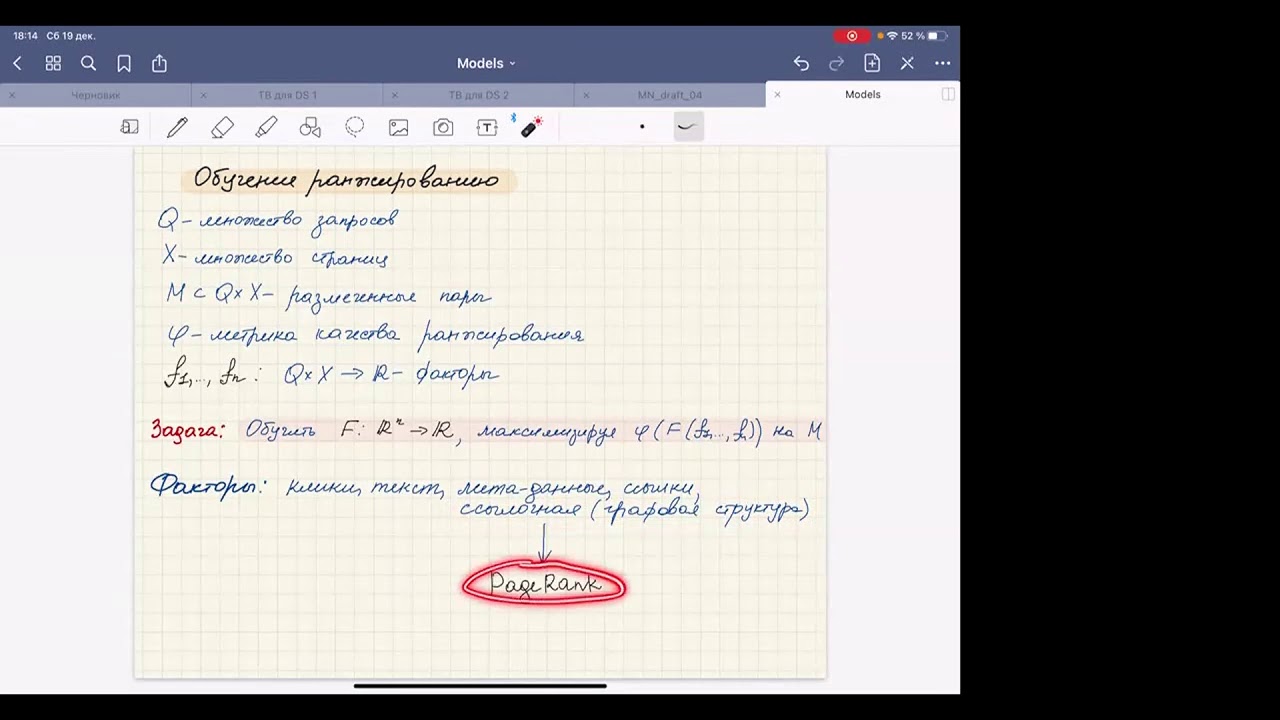 18:14 Сб 19 дек. 52 %
Models
Черновик ТВ для DS 1 ТВ для DS 2 MN_draft_04 Models
Обучение ранжированию
Q – множество запросов
X – множество страниц
M ⊂ Q×X – размеченные пары
φ – метрика качества ранжирования
f₁,.., fₙ : Q×X → ℝ – факторы
Задача: Обучить F: ℝⁿ → ℝ, максимизируя φ(F(f₁,..,fₙ)) на M
Факторы: клики, текст, мета-данные, ссылки,
ссылочная (графовая структура)
PageRank